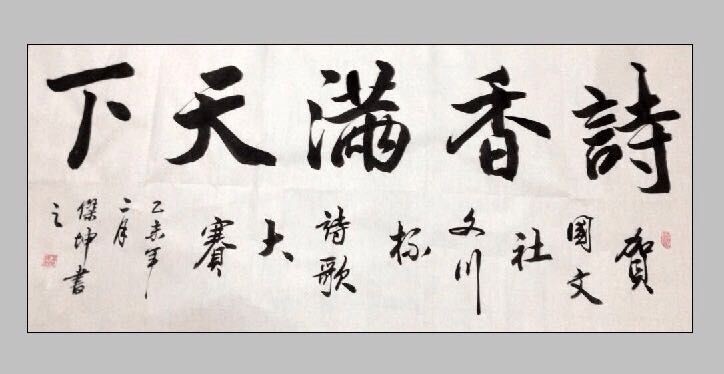 詩香滿天下
賀國文社文川杯詩歌大賽
乙未年二月
傑坤書之